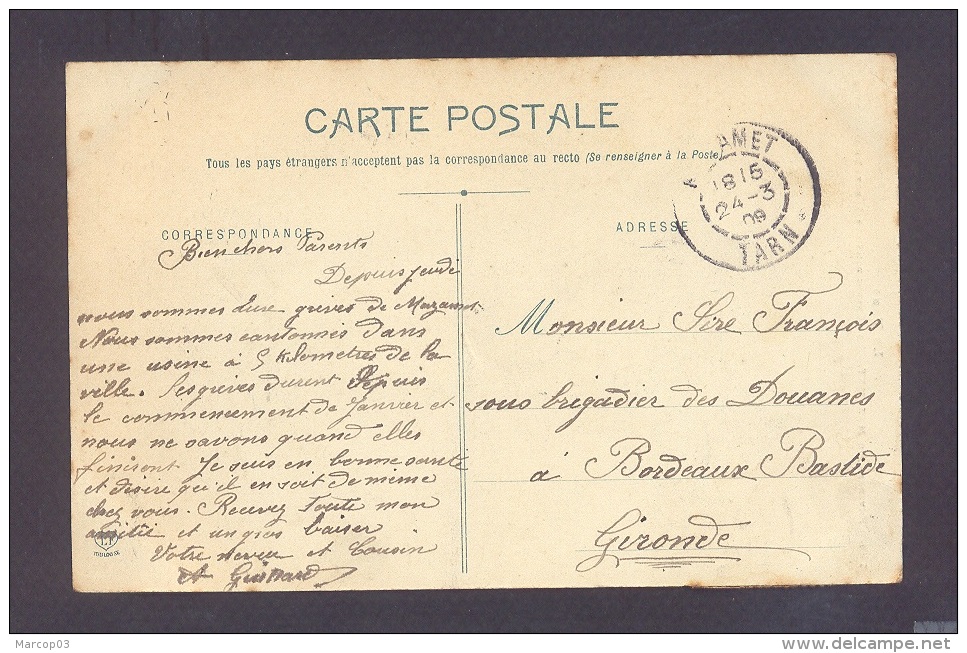 CARTE POSTALE
Tous les pays étrangers n'acceptent pas la correspondance au recto (Se renseigner à la Poste)
CORRESPONDANCE
ADRESSE
AMET
18 15
24-3
09
TARN
Bien chers Parents
Depuis jeudi
nous sommes aux grèves de Mazamet.
Nous sommes cantonnés dans
une usine à 5 kilometres de la
ville. Les grèves durent depuis
le commencement de Janvier et
nous ne savons quand elles
finiront Je suis en bonne santé
et désire qu'il en soit de même
chez vous. Recevez toute mon
amitié et un gros baiser
Votre neveu et Cousin
Monsieur Sire François
sous brigadier des Douanes
à Bordeaux Bastide
Gironde
Marcop03
www.delcampe.net